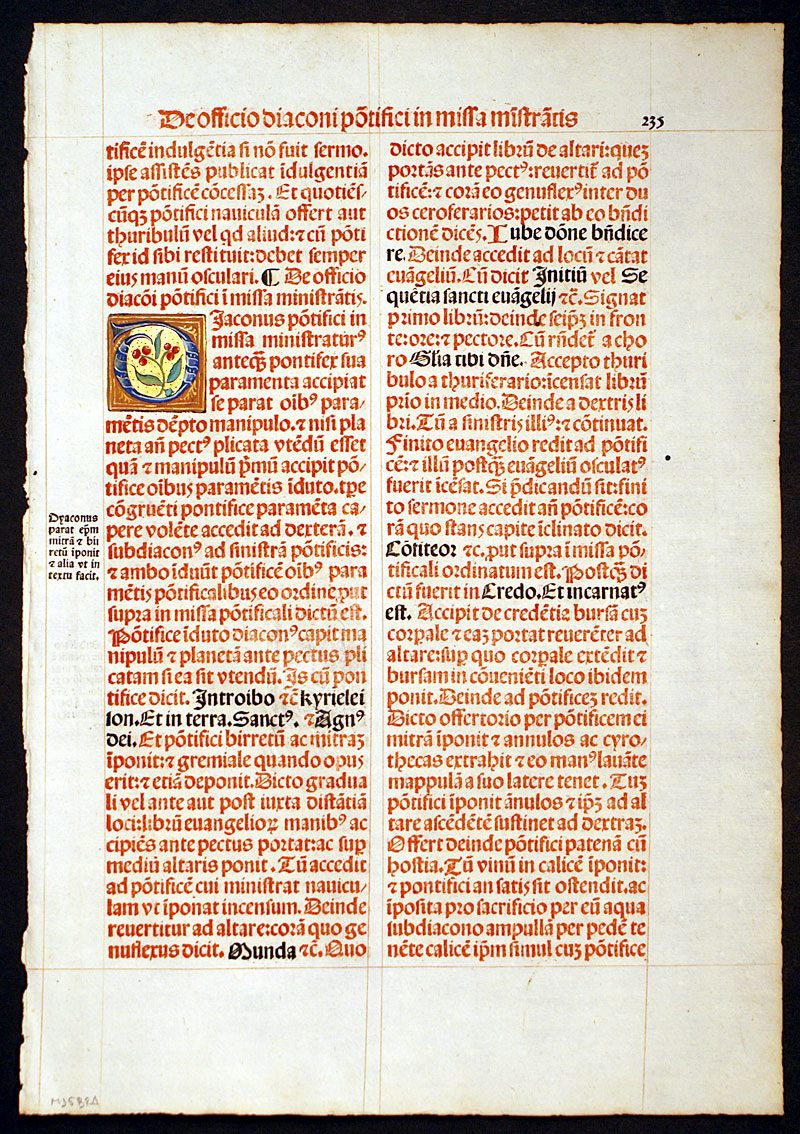 De officio diaconi põtifici in missa mĩstrãtis
235
tificẽ indulgẽtia si nõ fuit sermo.
ipse assistẽs publicat ĩdulgentiã
per põtificẽ cõcessaz. Et quotiẽs-
cũqz põtifici nauiculã offert aut
thuribulũ vel qd aliud: ⁊ cũ põti
fex id sibi restituit: debet semper
eius manũ osculari. ¶ De officio
diacõi põtifici ĩ missa ministrãtis.
DIaconus põtifici in
missa ministraturꝰ
anteqz pontifex sua
paramenta accipiat
se parat oĩbꝰ para-
mẽtis dẽpto manipulo. ⁊ nisi pla
neta añ pectꝰ plicata vtẽdũ esset
quã ⁊ manipulũ p̃mũ accipit põ-
tifice oĩbus paramẽtis ĩduto. tp̃e
cõgruẽti pontifice paramẽta ca-
pere volẽte accedit ad dexterã. ⁊
subdiaconꝰ ad sinistrã põtificis:
⁊ ambo ĩduũt põtificẽ oĩbꝰ para
mẽtis põtificalibus eo ordine put
supra in missa põtificali dictũ est.
Põtifice ĩduto diaconꝰ capit ma
nipulũ ⁊ planetã ante pectus pli
catam si ea sit vtendũ. Is cũ pon
tifice dicit. Introibo ⁊c̃ kyrielei
son. Et in terra. Sanctꝰ. ⁊ Agnꝰ
dei. Et põtifici birretũ ac mitraz
ĩponit: ⁊ gremiale quando opus
erit: ⁊ etiã deponit. Dicto gradua
li vel ante aut post iuxta distãtiã
loci: librũ euangelioꝝ manibꝰ ac
cipiẽs ante pectus portat: ac sup
mediũ altaris ponit. Tũ accedit
ad põtificẽ cui ministrat nauicu-
lam vt ĩponat incensum. Deinde
reuertitur ad altare: corã quo ge
nuflexus dicit. Munda ⁊c̃. Quo
Dyaconus
parat ep̃m
mitrã ⁊ bir
retũ ĩponit
⁊ alia vt in
textu facit.
dicto accipit librũ de altari: quez
portãs ante pectꝰ: reuertit̃ ad põ
tificẽ: ⁊ corã eo genuflexꝰ inter du
os ceroferarios: petit ab eo bñdi
ctionẽ dicẽs. Iube dõne bñdice
re. Deinde accedit ad locũ ⁊ cãtat
euãgeliũ. Cũ dicit Initiũ vel Se
quẽtia sancti euãgelij ⁊c̃. Signat
primo librũ: deinde seip̃z in fron
te: ore: ⁊ pectore. Cũ rñdet̃ a cho
ro Gl̃ia tibi dñe. Accepto thuri
bulo a thuriferario: ĩcensat librũ
prĩo in medio. Deinde a dextris li
bri. Tũ a sinistris illiꝰ: ⁊ cõtinuat.
Finito euangelio redit ad põtifi
cẽ: ⁊ illũ postqz euãgeliũ osculatꝰ
fuerit ĩcẽsat. Si p̃dicandũ sit: fini
to sermone accedit añ põtificẽ: co
rã quo stans capite ĩclinato dicit.
Cõfiteor ⁊c. put supra ĩ missa põ-
tificali ordinatum est. Postqz di
ctũ fuerit in Credo. Et incarnatꝰ
est. Accipit de credẽtia bursã cuz
corp̃ale ⁊ eaz portat reuerẽter ad
altare: sup quo corp̃ale extẽdit ⁊
bursam in cõueniẽti loco ibidem
ponit. Deinde ad põtificez redit.
Dicto offertorio per põtificem ei
mitrã ĩponit ⁊ annulos ac cyro-
thecas extrahit ⁊ eo manꝰ lauãte
mappulã a suo latere tenet. Tuz
põtifici ĩponit ãnulos ⁊ ip̃z ad al
tare ascẽdẽtẽ sustinet ad dextraz.
Offert deinde põtifici patenã cũ
hostia. Tũ vinũ in calicẽ ĩponit:
⁊ pontifici an satis sit ostendit. ac
ĩposita pro sacrificio per eũ aqua
subdiacono ampullã per pedẽ te
nẽte calicẽ ip̃m simul cuz põtifice